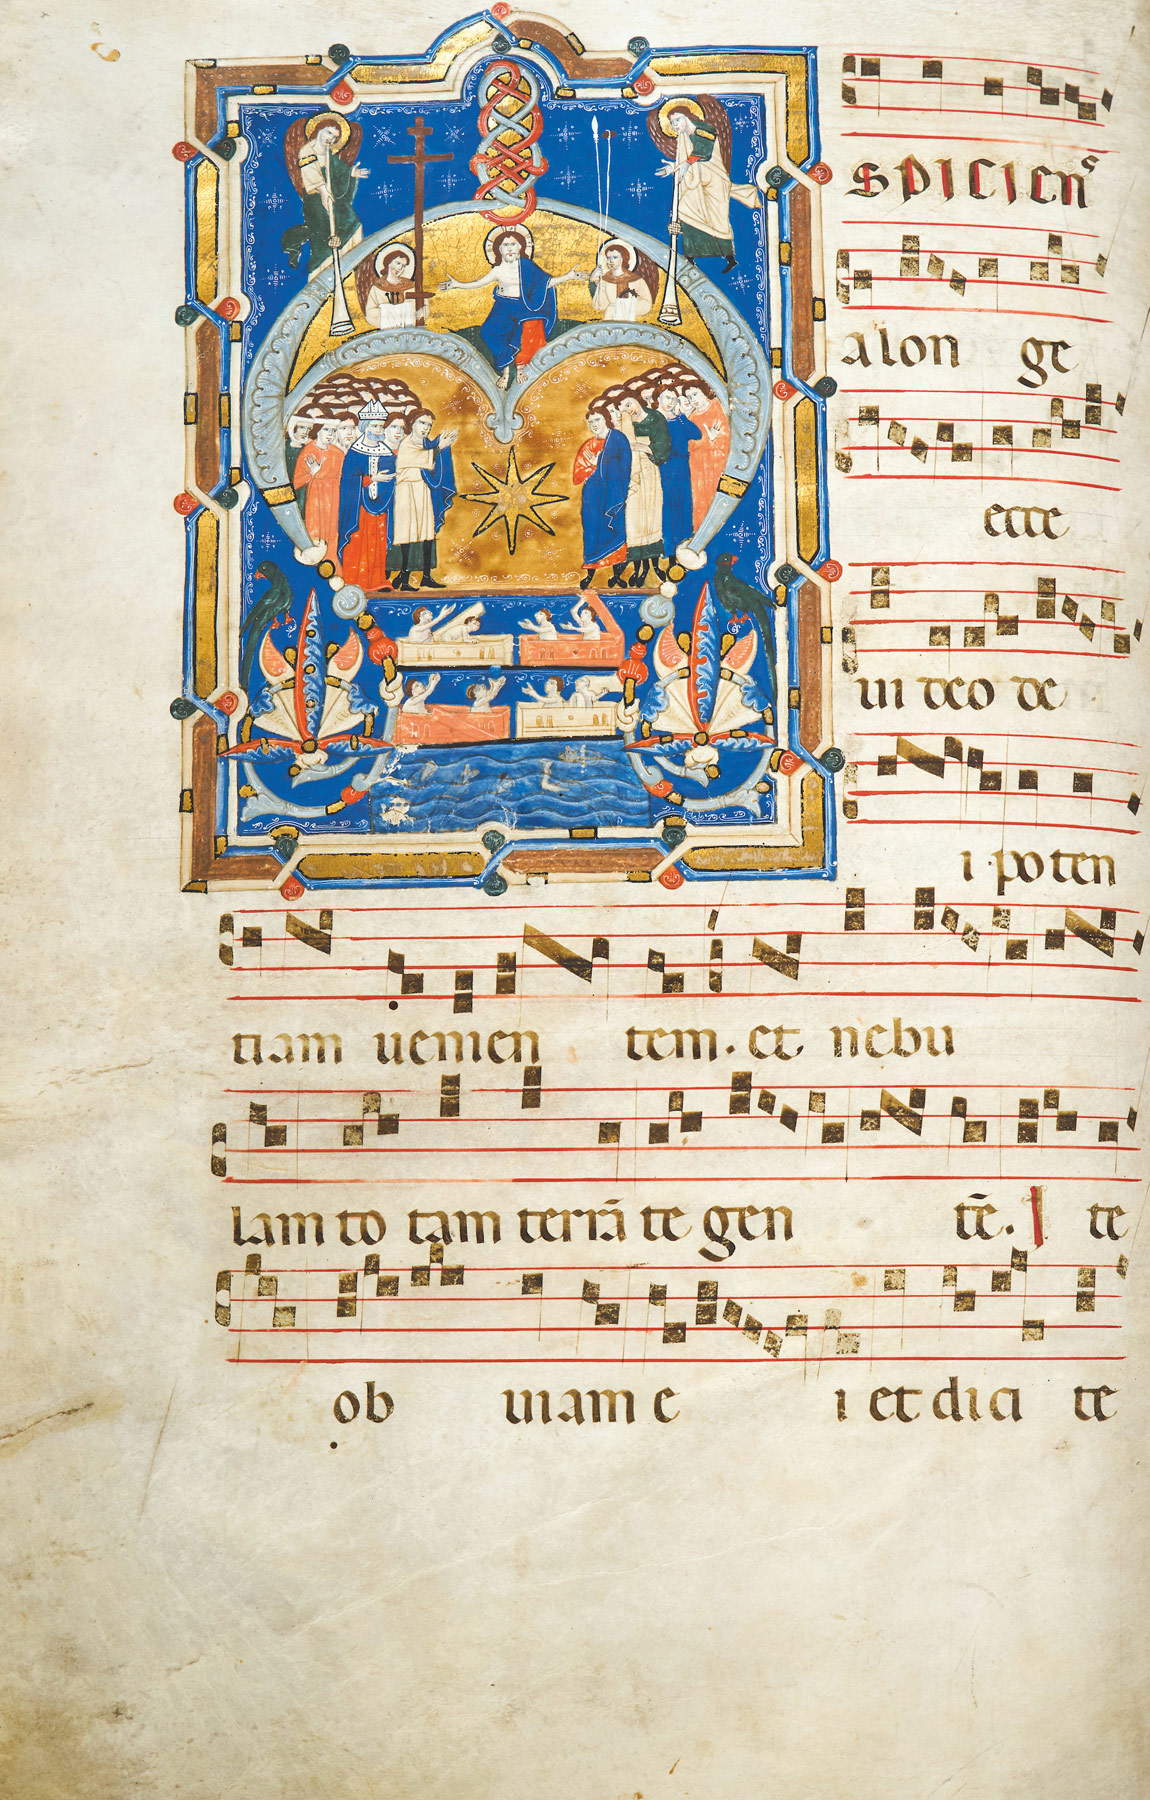 SPICIENS
alon ge
ecce
ui deo de
i · poten
tiam uenien tem · et nebu
lam to tam terrā te gen tē. I te
ob uiam e i et dici te